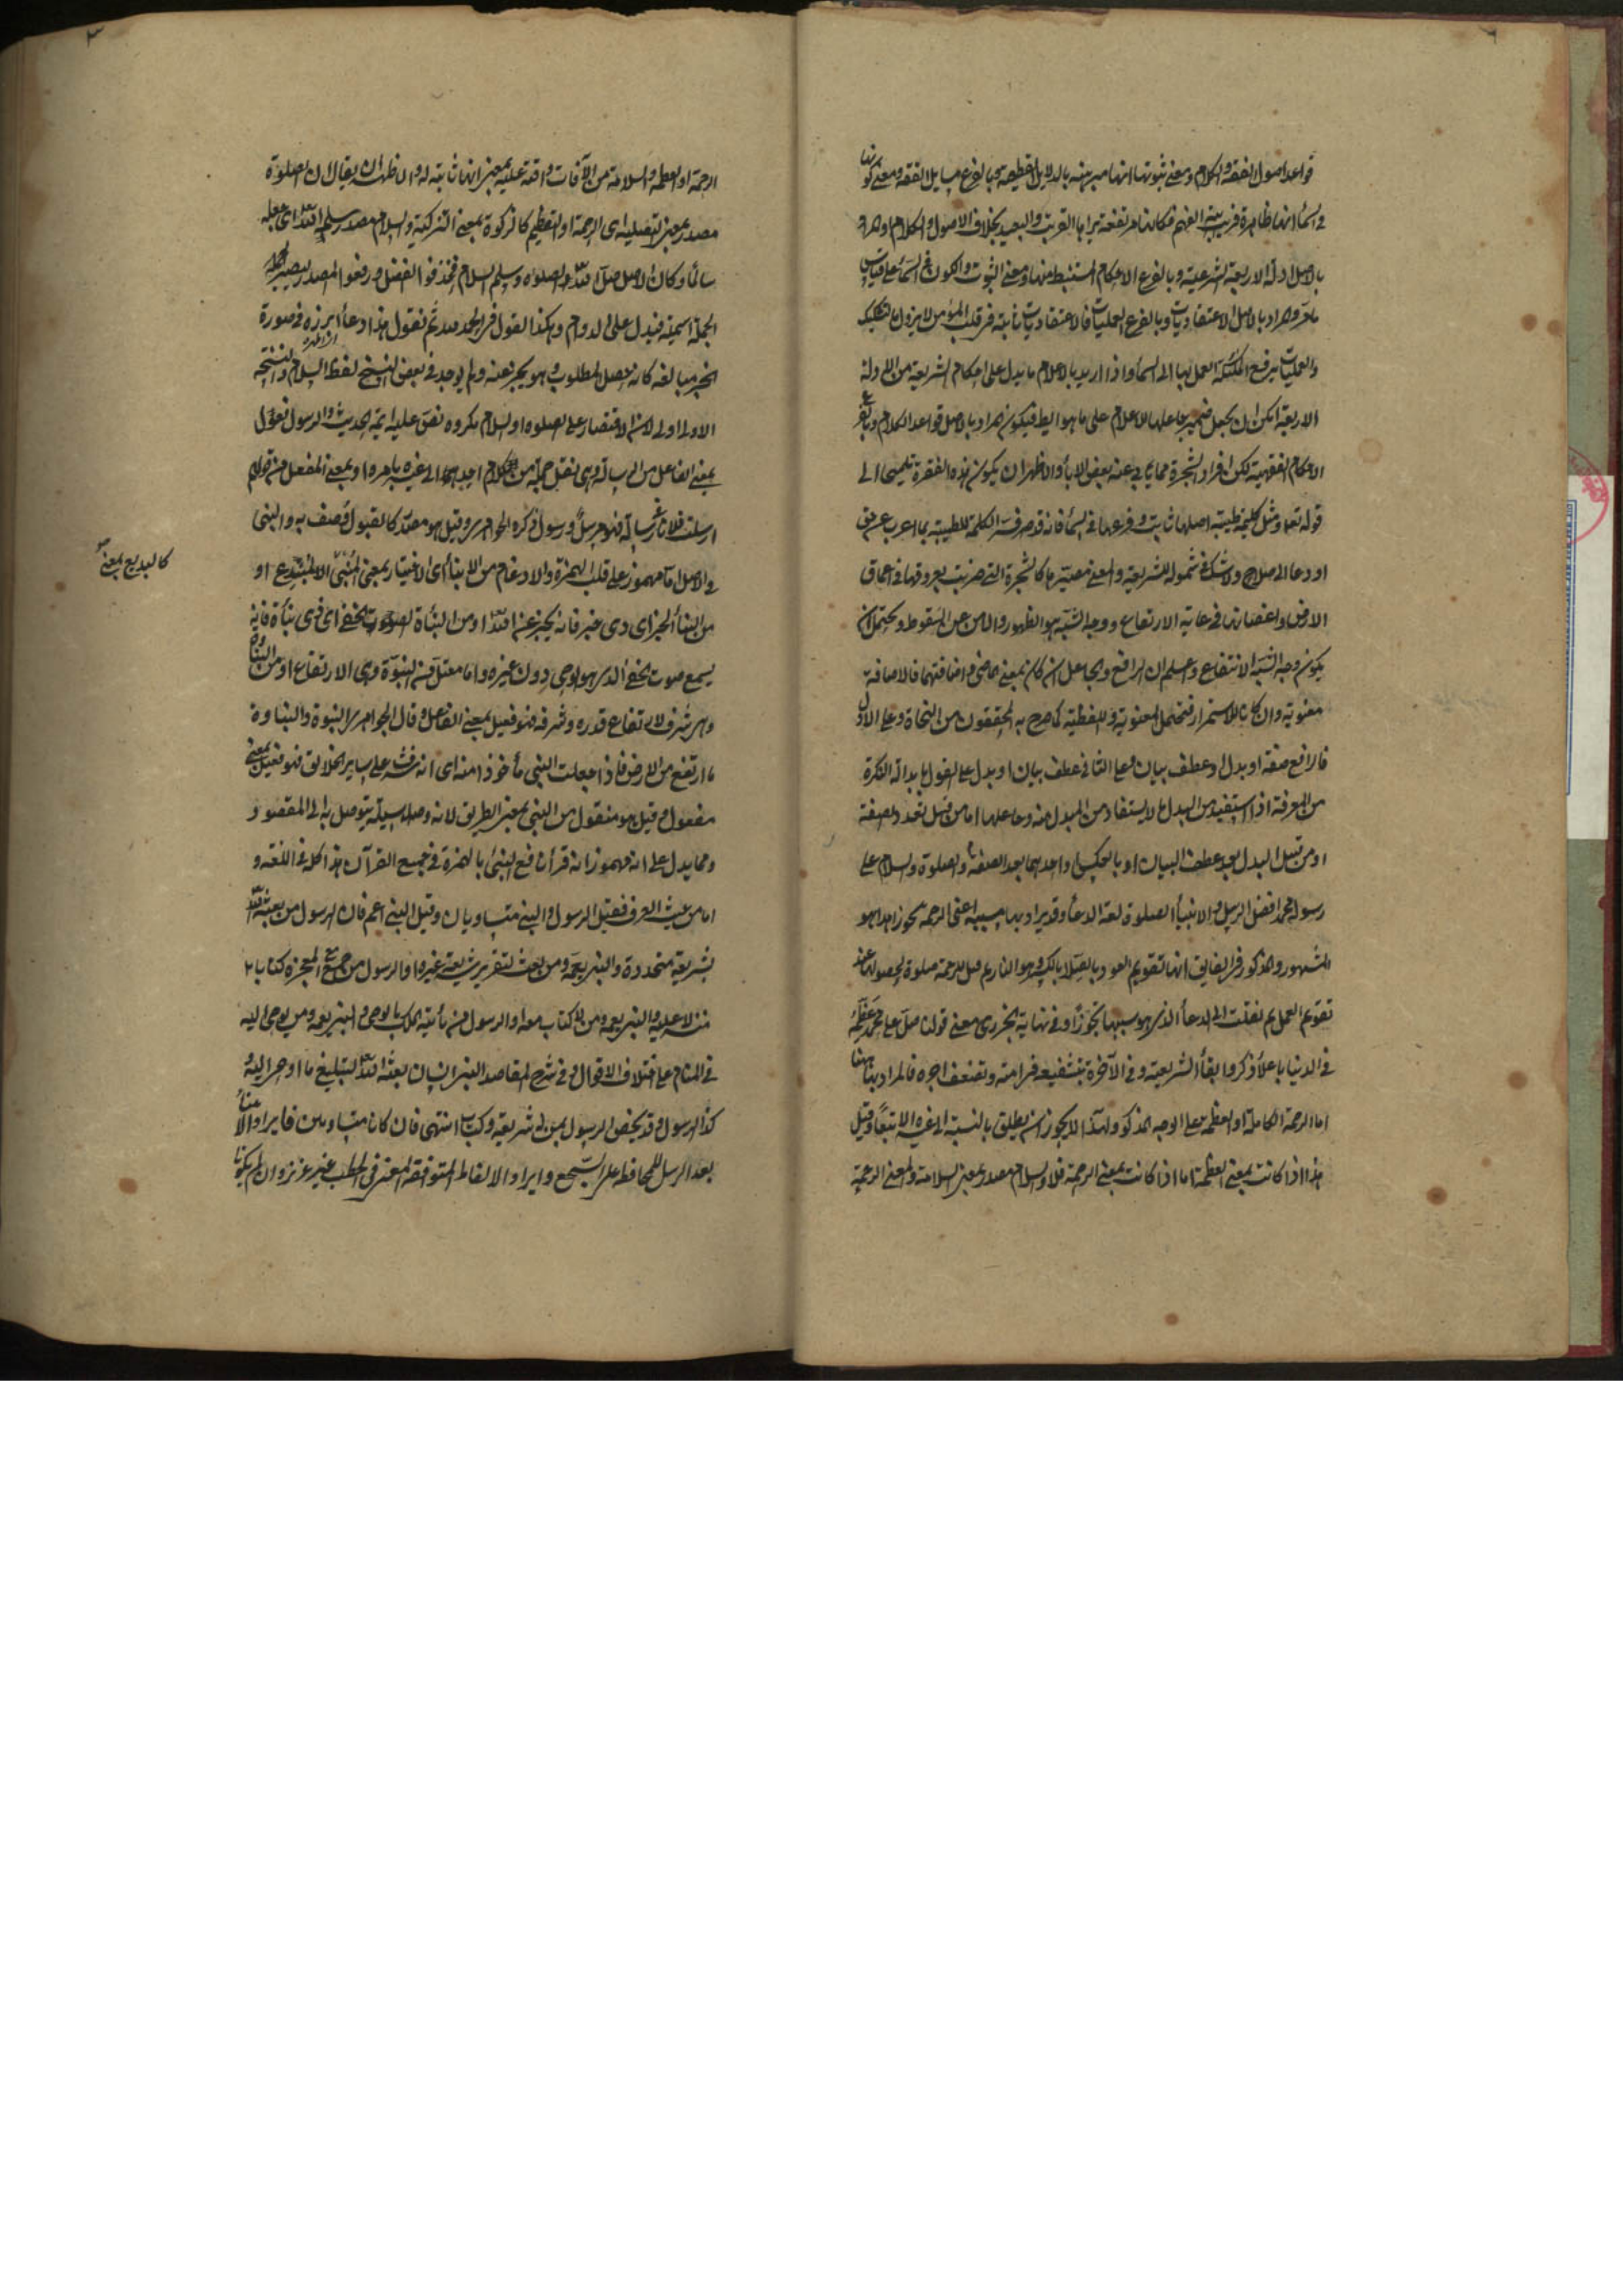 قواعد اصول الفقه والكلام ومعنى ثبوتها انها مبرهنة بالدلايل القطيعة وبالفرع مسايل الفقه ومعنى كونها
في السماء انها ظاهرة قريبة الفهم فكانها مرتفعة يراها القريب والبعيد بخلاف الاصول والكلام او المراد
بالاصل ادلة الاربعة الشرعية وبالفرع الاحكام المستنبط منها ومعنى الثبوت والكون في السماء على قياس
ما مر والمراد بالاصل الاعتقاديات وبالفرع العمليات فالاعتقاديات ثابتة في قلب المؤمن لا يزول بالتشكيك
والعمليات يرفع الملئكة العمل بها الى السماء واذا اريد بالاعلام ما يدل على احكام الشريعة من الادلة
الاربعة امكن ان يجعل ضمير جاعلها للاعلام على ما هو الظ فيكون المراد بالاصل قواعد الكلام وبالفرع
الاحكام الفقهية لكن افراد الشجرة مما يابى عنه بعض الاباء والاظهر ان يكون هذه الفقرة تلميحا الى
قوله تعالى ومثل كلمة طيبة اصلها ثابت وفرعها في السماء فانه قد صرفسر الكلمة الطيبة بما اعرب عن حق
او دعا الى صلاح ولا شك في شموله للشريعة والمعنى مصيرها كالشجرة التي ضربت بعروقها في اعماق
الارض واغصانها في غاية الارتفاع ووجه الشبه هو الظهور والامن عن السقوط ويحتمل ان
يكون وجه الشبه الانتفاع واعلم ان الرافع والجاعل ان كان بمعنى الماضي واضافتهما فالاضافة
معنوية وان كانا للاستمرار فتحتمل المعنوية واللفظية كما صرح به المحققون من النحاة وعلى الاول
فالرافع صفة او بدل او عطف بيان وعلى الثاني عطف بيان او بدل على القول بابدال النكرة
من المعرفة اذا استفيد من البدل ما لا يستفاد من المبدل منه وجاعلها اما من قبيل تعدد الصفة
او من قبيل البدل بعد عطف البيان او بالعكس او احدهما بعد الصفة والصلوة والسلام على
رسوله محمد افضل الرسل والانبياء الصلوة لغة الدعاء وقد يراد بها مسببه اعنى الرحمة تجوزا هذا هو
المشهور والمذكور في الفايق انها تقويم العود بالصلا بالكسر وهو النار ثم قيل للرحمة صلوة لحصولها عند
تقويم العمل ثم نقلت الى الدعاء الذي هو سببها تجوزا وفي نهاية الجزري معنى قولنا صل على محمد عظمه
في الدنيا باعلاء ذكره وابقاء الشريعة وفي الآخرة بتشفيعه في امته وتضعف اجره فالمراد بها ههنا
اما الرحمة الكاملة او العظمة على الوجه المذكور ولهذا لا يجوز ان يطلق بالنسبة الى غيره الا تبعا وقيل
هذا اذا كانت بمعنى العظمة اما اذا كانت بمعنى الرحمة فلا والسلام مصدر بمعنى السلامة والمعنى الرحمة
الرحمة او العظمة والسلامة من الآفات واقعة عليه بمعنى انها ثابتة له والاظهر ان يقال ان الصلوة
مصدر بمعنى التصلية اى الرحمة او التعظيم كالزكوة بمعنى التزكية والسلام مصدر سلمه الله اى جعله
سالما وكان الاصل صل الله الصلوة وسلم السلام فحذفوا الفعل ورفعوا المصدر ليصير الجملة
الجملة اسمية فيدل على الدوام وهكذا القول في الحمد لله ثم نقول هذا دعاء ابرزه في صورة
الخبر مبالغة كانه حصل المطلوب وهو يخبر عنه ولم يوجد في بعض النسخ لفظ السلام والنسخة
الاولى اولى لان الاقتصار على الصلوة او السلام مكروه نص عليه ايمة الحديث والرسول فعول
بمعنى الفاعل من الرسالة وهي نقل جملة من الكلام احدهما الى غيره بامره او بمعنى المفعل من قولهم
ارسلت فلانا رسالة فهو مرسل ورسول ذكره الجوهري وقيل هو مصدر كالقبول وصف به والنبي
في الاصل اما مهموز على قلب الهمزة والادغام من الانباء اى الاخبار بمعنى المنبئ المبتدع او
من النباء الخبر اى ذى خبر فانه يخبر عن الله او من النبأة الصوت الخفي اى ذى نبأة فانه
يسمع صوت الخفي الذي هو الوحي دون غيره واما معتل من النبوة وهي الارتفاع او من النباوة
وهي شرف لارتفاع قدره وشرفه فهو فعيل بمعنى الفاعل وقال الجوهري النبوة والنباوة
ما ارتفع من الارض فاذا جعلت النبي مأخوذا منه اى انه شرف على ساير الخلايق فهو فعيل بمعنى
مفعول وقيل هو منقول من النبي بمعنى الطريق لانه وصلة وسيلة يتوصل به الى المقصود
ومما يدل على انه مهموز انه قرأ نافع النبئ بالهمزة في جميع القرآن هذا كله في اللغة و
اما من حيث العرف فقيل الرسول والنبي متساويان وقيل النبي اعم فان الرسول من بعثه الله
بشريعة متجددة والنبي يعمه ومن بعث لتقرير شريعة غيره او الرسول من جمع مع المعجزة كتابا
منزلا عليه والنبي يعمه ومن لا كتاب معه او الرسول من يأتيه الملك بالوحي والنبي يعمه ومن يوحى اليه
في المنام على اختلاف الاقوال وفي شرح المقاصد النبي انسان بعثه الله لتبليغ ما اوحى اليه
كذا الرسول وقد يخص الرسول بمن له شريعة وكتاب انتهى فان كانا متساويين فايراد الانبياء
بعد الرسل للمحافظة على السجع وايراد الالفاظ المتوافقة المعنى في الخطب غير عزيز وان لم يكونا
كالبديع بمعنى